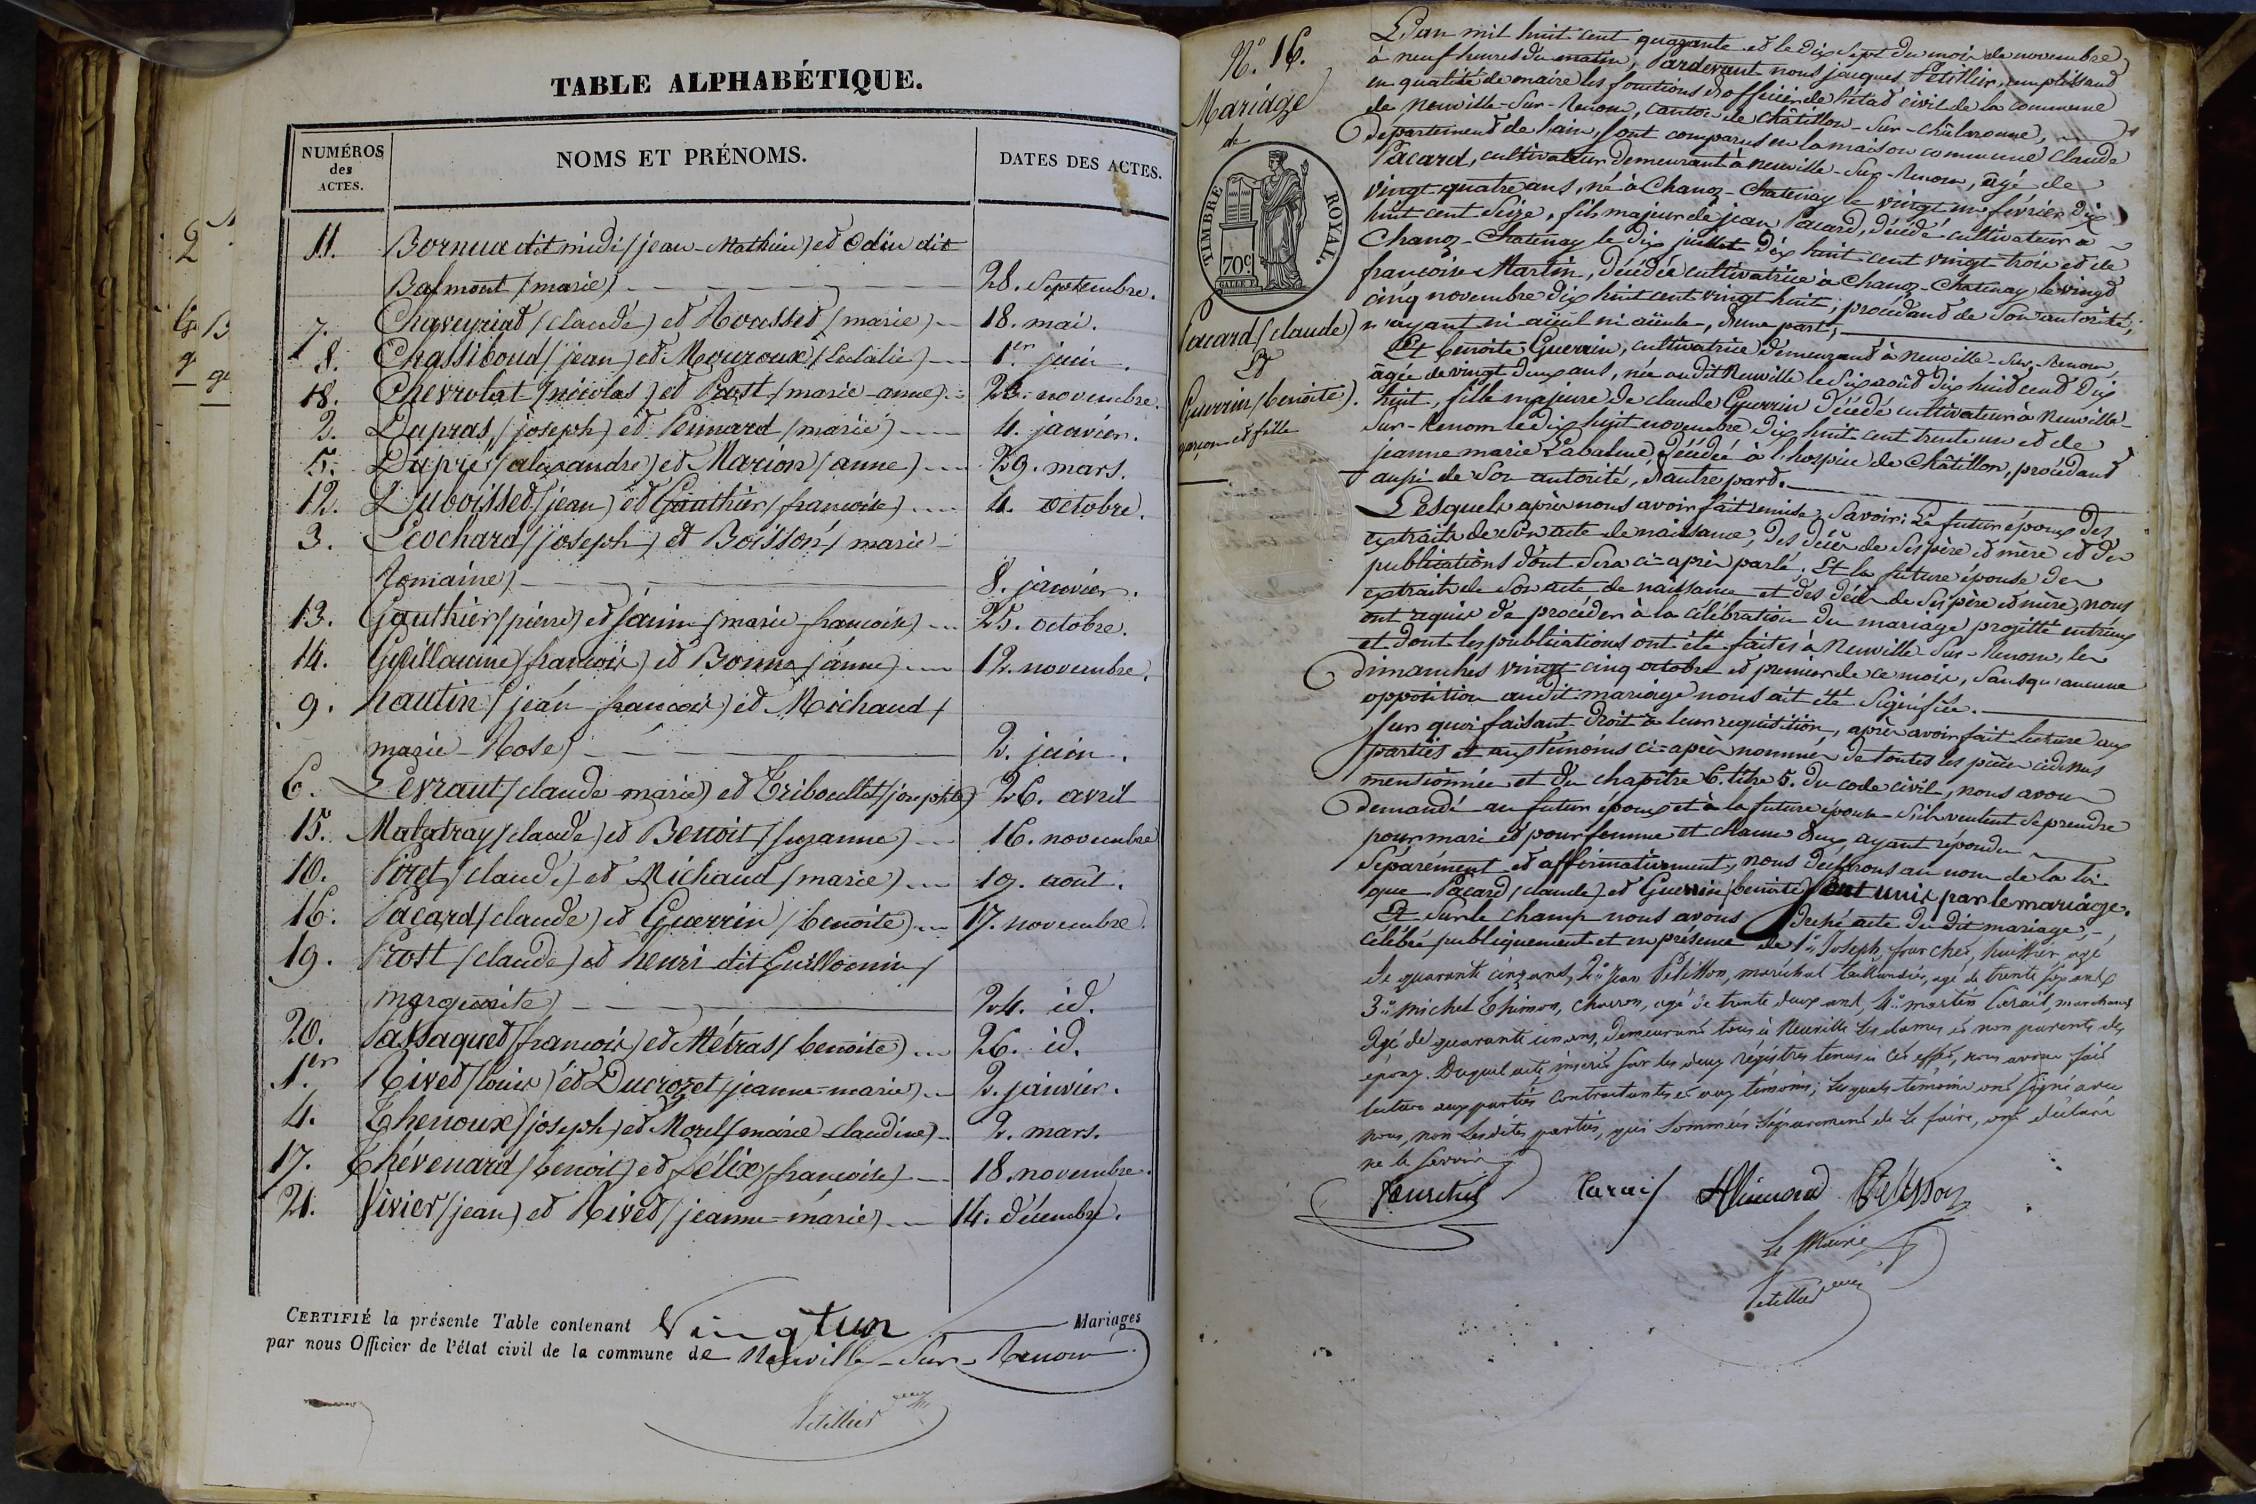 TABLE ALPHABÉTIQUE.
NUMÉROS des ACTES.
NOMS ET PRÉNOMS.
DATES DES ACTES.
11. Bornua dit midi (jean-Mathieu) et Odin dit
Balmont (marie) 28. Septembre.
7. Chaveyriat (claude) et Rousset (marie) 18. mai.
8. Chassiboud (jean) et Mouroux (Eulalie) 1er juin.
18. Chevrolat (nicolas) et Prost (marie-anne) novembre.
2. Dupras (joseph) et (marie) 4. janvier.
5. Dupré (alexandre) et Marion (anne) 29. mars.
12. Duboisset (jean) et Gauthier (francoise) 4. octobre.
3. (joseph) et Boisson (marie-
Romaine) 8. janvier.
13. Gauthier (pierre) et (marie francoise) 25. octobre.
14. Guillaume (francois) et Bonne (anne) 12. novembre.
9. hautin (jean-francois) et Michaud (
marie-Rose) 2. juin.
6. Levraut (claude-marie) et Triboullet (josephte) 26. avril
15. Malatray (claude) et Benoit (suzanne) 16. novembre
10. Piret (claude) et Michaud (marie) 19. août.
16. Pacard (claude) et Guerrin (benoite) 17. novembre.
19. Prost (claude) et henri dit Guillomin (
marguerite) 24. id.
20. Passaquet (francois) et Métras (benoite) 26. id.
1er Rivet (louis) et Ducrozet (jeanne-marie) 2. janvier.
4. Thenoux (joseph) et Morel (marie claudine) 2. mars.
17. Thévenard (benoit) et félix (francoise) 18. novembre.
21. Vivier (jean) et Rivet (jeanne-marie) 14. décembre.
CERTIFIÉ la présente Table contenant Vingt un Mariages
par nous Officier de l'état civil de la commune de Neuville-Sur-Renom
Petillier
N.° 16.
Mariage
de
TIMBRE ROYAL.
70 c.
Pacard (claude)
Et
Guerrin (benoite).
garçon et fille
L'an mil huit cent quarante et le dix Sept du mois de novembre,
à neuf heures du matin, Pardevant nous jacques Petillier, remplissant
en qualité de maire les fonctions d'officier de l'état civil de la commune
de Neuville-Sur-Renom, canton de Châtillon-Sur-Chalaronne,
département de l'ain, sont comparus en la maison commune Claude
Pacard, cultivateur demeurant à Neuville-Sur-Renom, âgé de
vingt-quatre ans, né à Chanoz-Chatenay le vingt un février dix
huit cent Seize, fils majeur de jean Pacard, décédé cultivateur à
Chanoz-Chatenay le dix juillet dix huit cent vingt trois et de
francoise Martin, décédée cultivatrice à Chanoz-Chatenay le vingt
cinq novembre dix huit cent vingt huit; procédant de son autorité,
n'ayant ni aïeul ni aïeule, d'une part,
Et benoite Guerrin, cultivatrice demeurant à Neuville-Sur-Renom,
âgée de vingt deux ans, née audit Neuville le Six août dix huit cent dix
huit, fille majeure de claude Guerrin décédé cultivateur à Neuville-
Sur-Renom le dix huit novembre dix huit cent trente un et de
jeanne marie Labalme, décédée à l'hospice de Châtillon, procédant
aussi de Son autorité, d'autre part.
Lesquels après nous avoir fait remise, Savoir: Le futur époux des
extraits de Son acte de naissance, des décès de Ses père et mère et des
publications dont Sera ci-après parlé. Et la future épouse des
extraits de Son acte de naissance et des décès de Ses père et mère, nous
ont requis de procéder à la célébration du mariage projetté entr'eux
et dont les publications ont été faites à Neuville-Sur-Renom, les
dimanches vingt-cinq octobre et premier de ce mois, Sans qu'aucune
opposition audit mariage nous ait été Signifiée.
Sur quoi faisant droit à leur requisition, après avoir fait lecture aux
parties et aux témoins ci-après nommés de toutes les pièces cidessus
mentionnées et du chapitre 6. titre 5. du code civil, nous avons
demandé au futur époux et à la future épouse S'ils veulent Se prendre
pour mari et pour femme et chacun d'eux ayant répondu
Séparément et affirmativement, nous déclarons au nom de la loi
que Pacard (claude) et Guerrin (benoite) Sont unis par le mariage.
Et Sur le champ nous avons dressé acte du dit mariage,
célébré publiquement et en présence de 1° Joseph fourchet, huissier, agé
de quarante cinq ans, 2° Jean Petisson, maréchal taillandier, agé de trente six ans
3° Michel Thimon, charron, agé de trente deux ans, 4° martin Caraif, marchand
Agé de quarante un ans, demeurant tous à Neuville les dames et non parents des
époux. Duquel acte inscrit sur les deux régistres tenus à cet effet, nous avons fait
lecture aux parties contractantes et aux témoins; lesquels témoins ont signé avec
nous, non lesdites parties, qui Sommées Séparement de le faire, ont déclaré
ne le savoir
fourchet Thimond Petisson
Le Maire
Petillier